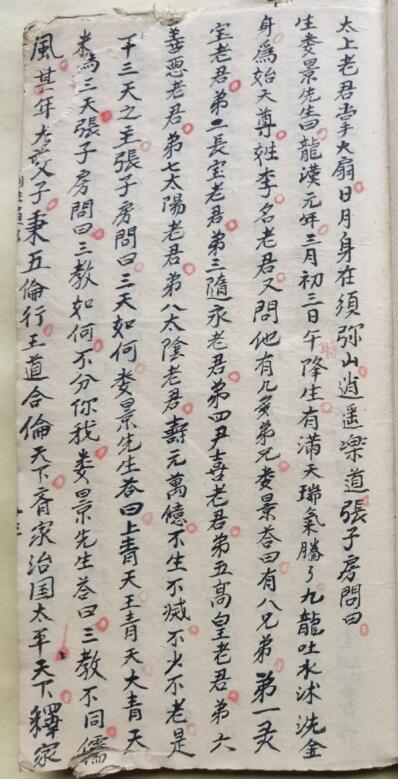 太上老君掌大扇日月身在須弥山逍遥樂道張子房問曰
生娄景先生曰龍漢元年三月初三日午時降生有满天瑞氣騰々九龍吐水沐洗金
身爲始天尊姓李名老君又問他有几多弟兄娄景荅曰有八兄弟第一灵
宝老君第二長宝老君第三隨永老君第四尹喜老君第五高皇老君第六
善恶老君第七太陽老君第八太陰老君壽元萬億不生不滅不少不老是
下三天之主張子房問曰三天如何娄景先生荅曰上青天王青天大青天
為三天張子房問曰三教如何不分你我娄景先生荅曰三教不同儒
風其年老父子秉五倫行王道合倫天下齊家治国太平天下釋家